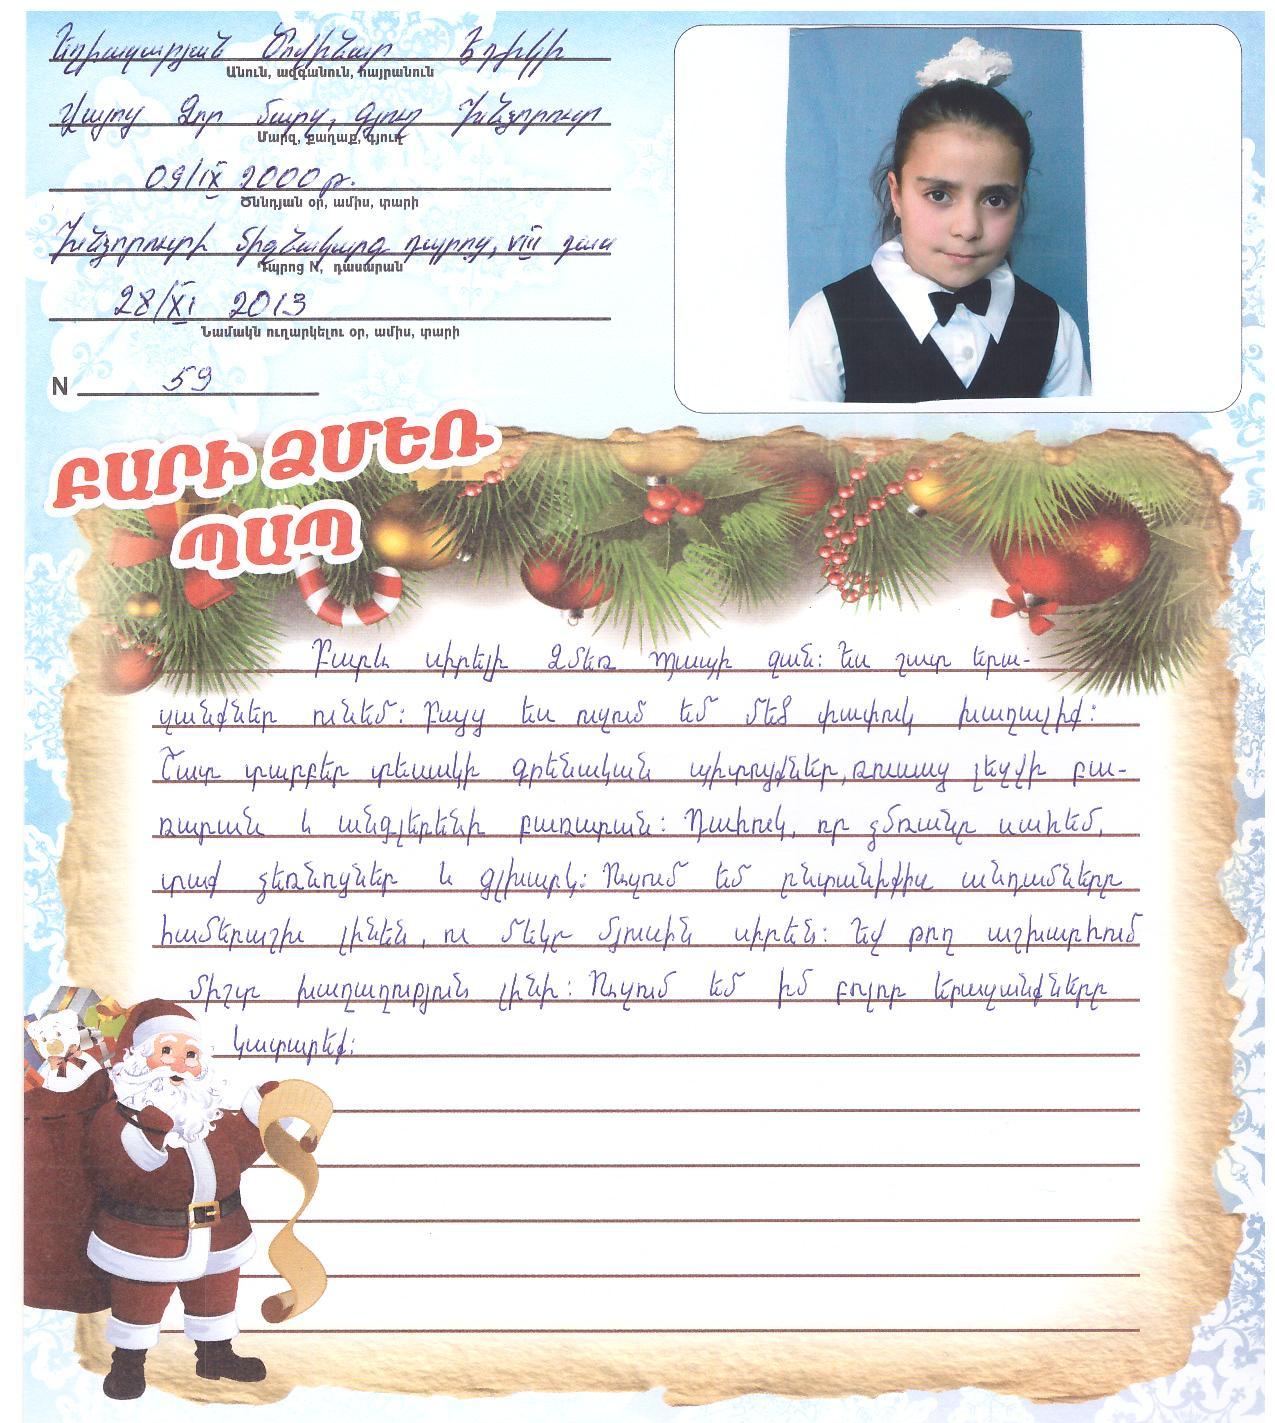 Եղիազարյան Ծովինար Էդիկի
Անուն, ազգանուն, հայրանուն
Վայոց Ձոր մարզ, գյուղ Խնձորուտ
Մարզ, քաղաք, գյուղ
09/IX 2000թ.
Ծննդյան օր, ամիս, տարի
Խնձորուտի միջնակարգ դպրոց, VIII դաս
Դպրոց N, դասարան
28/XI 2013
Նամակն ուղարկելու օր, ամիս, տարի
N 59
ԲԱՐԻ ՁՄԵՌ
ՊԱՊ
Բարև սիրելի Ձմեռ պապի ջան: Ես շատ երա-
զանքներ ունեմ: Բայց ես ուզում եմ մեծ փափուկ խաղալիք:
Շատ տարբեր տեսակի գրենական պիտույքներ, ռուսաց լեզվի բա-
ռարան և անգլերենի բառարան: Դահուկ, որ ձմռանը սահեմ,
տաք ձեռնոցներ և գլխարկ: Ուզում եմ ընտանիքիս անդամները
համերաշխ լինեն, ու մեկը մյուսին սիրեն: Եվ թող աշխարհում
միշտ խաղաղություն լինի: Ուզում եմ իմ բոլոր երազանքները
կատարեք: